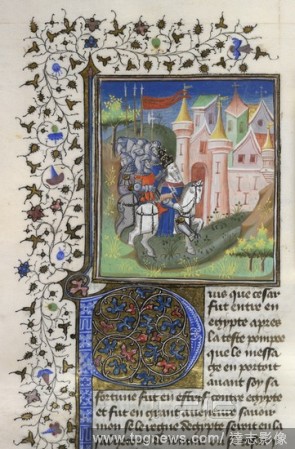 uis que cesar
fut entre en
egypte apres
la teste pompee
que le messa
ge en portoit
auant soy sa
fortune fut en effors contre egypte
et fut en grant auenture sauoir
mon se le regne degypte seroit en la
www.tognews.com / 達志影像